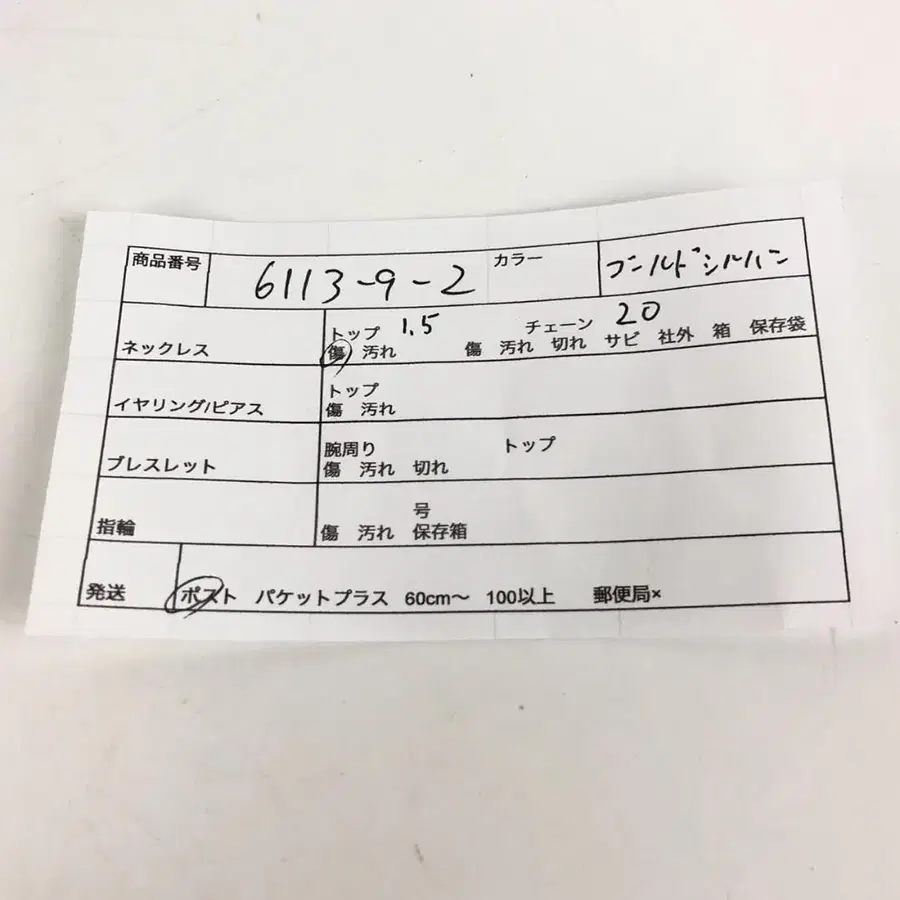 商品番号 6113-9-2 カラー ゴールドシルバー
ネックレス トップ 1.5 チェーン 20
傷 汚れ 傷 汚れ 切れ サビ 社外 箱 保存袋
イヤリング/ピアス トップ
傷 汚れ
ブレスレット 腕周り トップ
傷 汚れ 切れ
指輪 号
傷 汚れ 保存箱
発送 ポスト パケットプラス 60cm〜 100以上 郵便局×